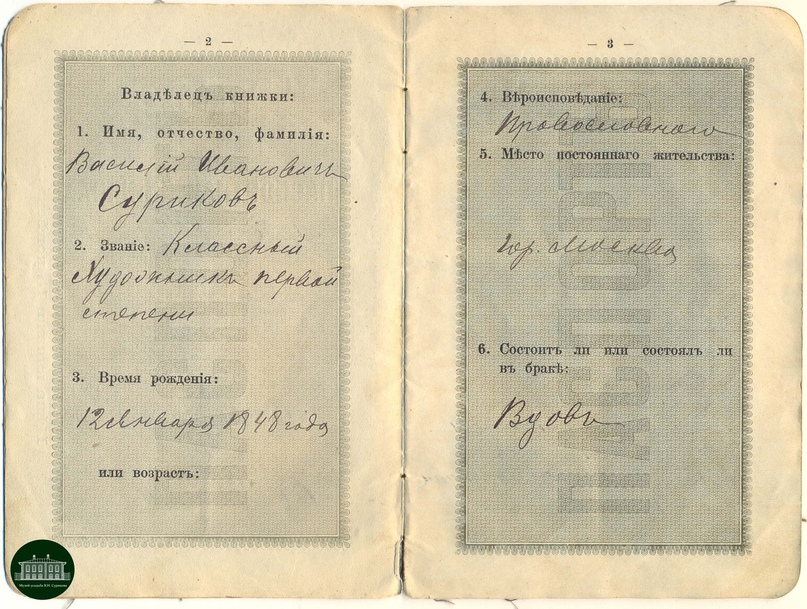 — 2 —
Владѣлецъ книжки:
1. Имя, отчество, фамилія:
Василій Ивановичъ
Суриковъ
2. Званіе: Классный
Художникъ первой
степени
3. Время рожденія:
12 Января 1848 года
или возрастъ:
— 3 —
4. Вѣроисповѣданіе:
Православнаго
5. Мѣсто постояннаго жительства:
гор. Москва
6. Состоитъ ли или состоялъ ли
въ бракѣ:
Вдовъ
ПАСПОРТЪ
Музей-усадьба В.И. Сурикова